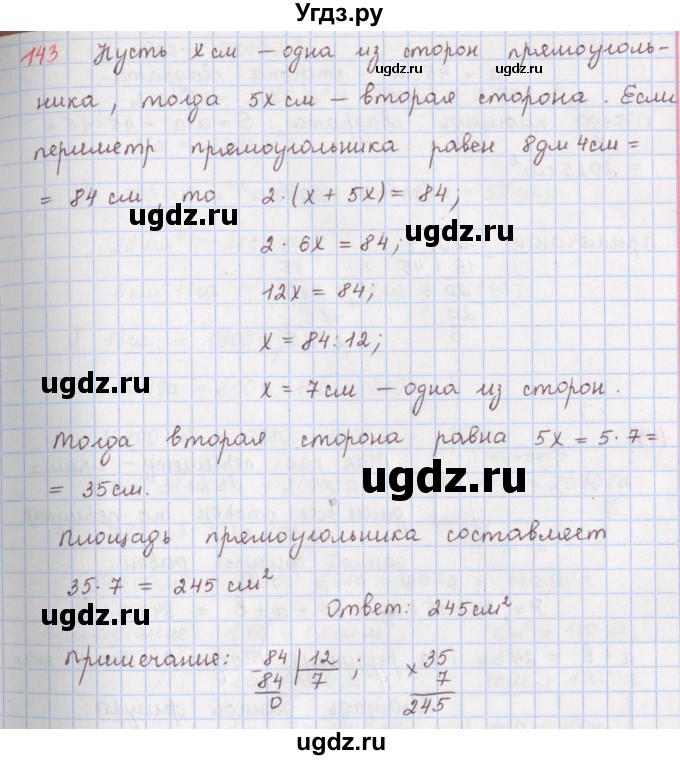 Угдз.ру
143 Пусть x см – одна из сторон прямоуголь-
ника, тогда 5x см – вторая сторона. Если
периметр прямоугольника равен 8дм 4см =
= 84 см, то 2·(x + 5x) = 84;
2·6x = 84;
12x = 84;
x = 84:12;
x = 7см – одна из сторон.
Тогда вторая сторона равна 5x = 5·7=
= 35см.
Площадь прямоугольника составляет
35·7 = 245 см²
Ответ: 245см²
Примечание: 84 | 12 ; × 35
84 7 7
0 245
ugdz.ru
ugdz.ru
ugdz.ru
ugdz.ru
ugdz.ru
ugdz.ru
ugdz.ru
ugdz.ru
ugdz.ru